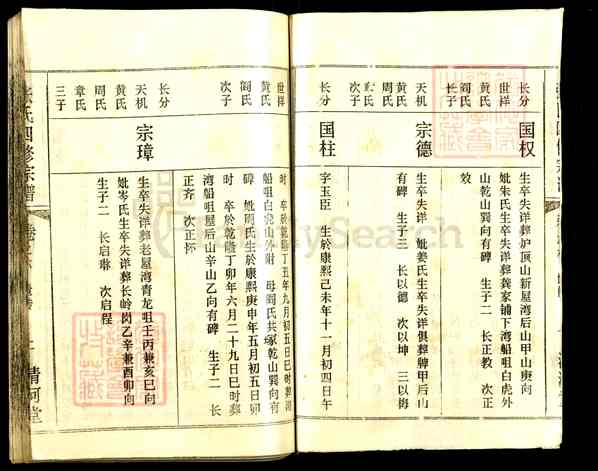 长分
世祥
黄氏
阎氏
长子
国权
生卒失详葬炉顶山新屋湾后山甲山庚向
妣朱氏生卒失详葬龚家铺下湾船咀白虎外
山乾山巽向有碑 生子二 长正教 次正
效
长分
天机
黄氏
周氏
次子
宗德
生卒失详 妣姜氏生卒失详俱葬牌甲后山
有碑 生子三 长以德 次以坤 三以梅
长分
世祥
黄氏
阎氏
次子
国柱
字玉臣 生於康熙己未年十一月初四日午
时 卒於乾隆丁丑年九月初五日巳时葬湾
船咀白虎山外附 母阎氏共冢乾山巽向有
碑 妣周氏生於康熙庚申年五月初五日卯
时 卒於乾隆丁卯年六月二十九日巳时葬
湾船咀屋后山辛山乙向有碑 生子二 长
正齐 次正怀
长分
天机
黄氏
周氏
章氏
三子
宗璋
生卒失详葬老屋湾青龙咀壬丙兼亥巳向
妣岑氏生卒失详葬长岭岗乙辛兼酉卯向
生子二 长启琳 次启程
氏四修宗谱
清河堂
FamilySearch